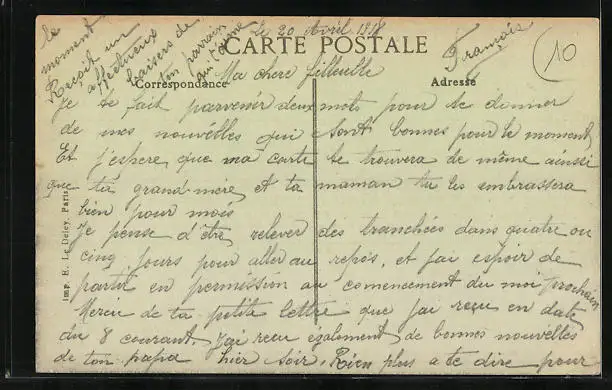 Le 20 Avril 1918
CARTE POSTALE
Correspondance
Adresse
Ma chere filleulle
Je te fait parvenir deux mots pour te donner
de mes nouvélles qui sont bonnes pour le moment,
Et j'espere que ma carte te trouvera de même ainsi
que ta grand-mère et ta maman tu les embrassera
bien pour mois
Je pense d'être relever des tranchées dans quatre ou
cinq jours pour aller au repos, et j'ai espoir de
partir en permission au comencement du moi prochain
Merciu de ta petite lettre que j'ai reçu en date
du 8 courant. J'ai reçu également de bonnes nouvélles
de ton papa hier soir. Rien plus a te dire pour
le
moment
Reçoit un
affectueux
baisers de
ton parrain
qui t'aime
François
10
Imp. H. Le Deley, Paris